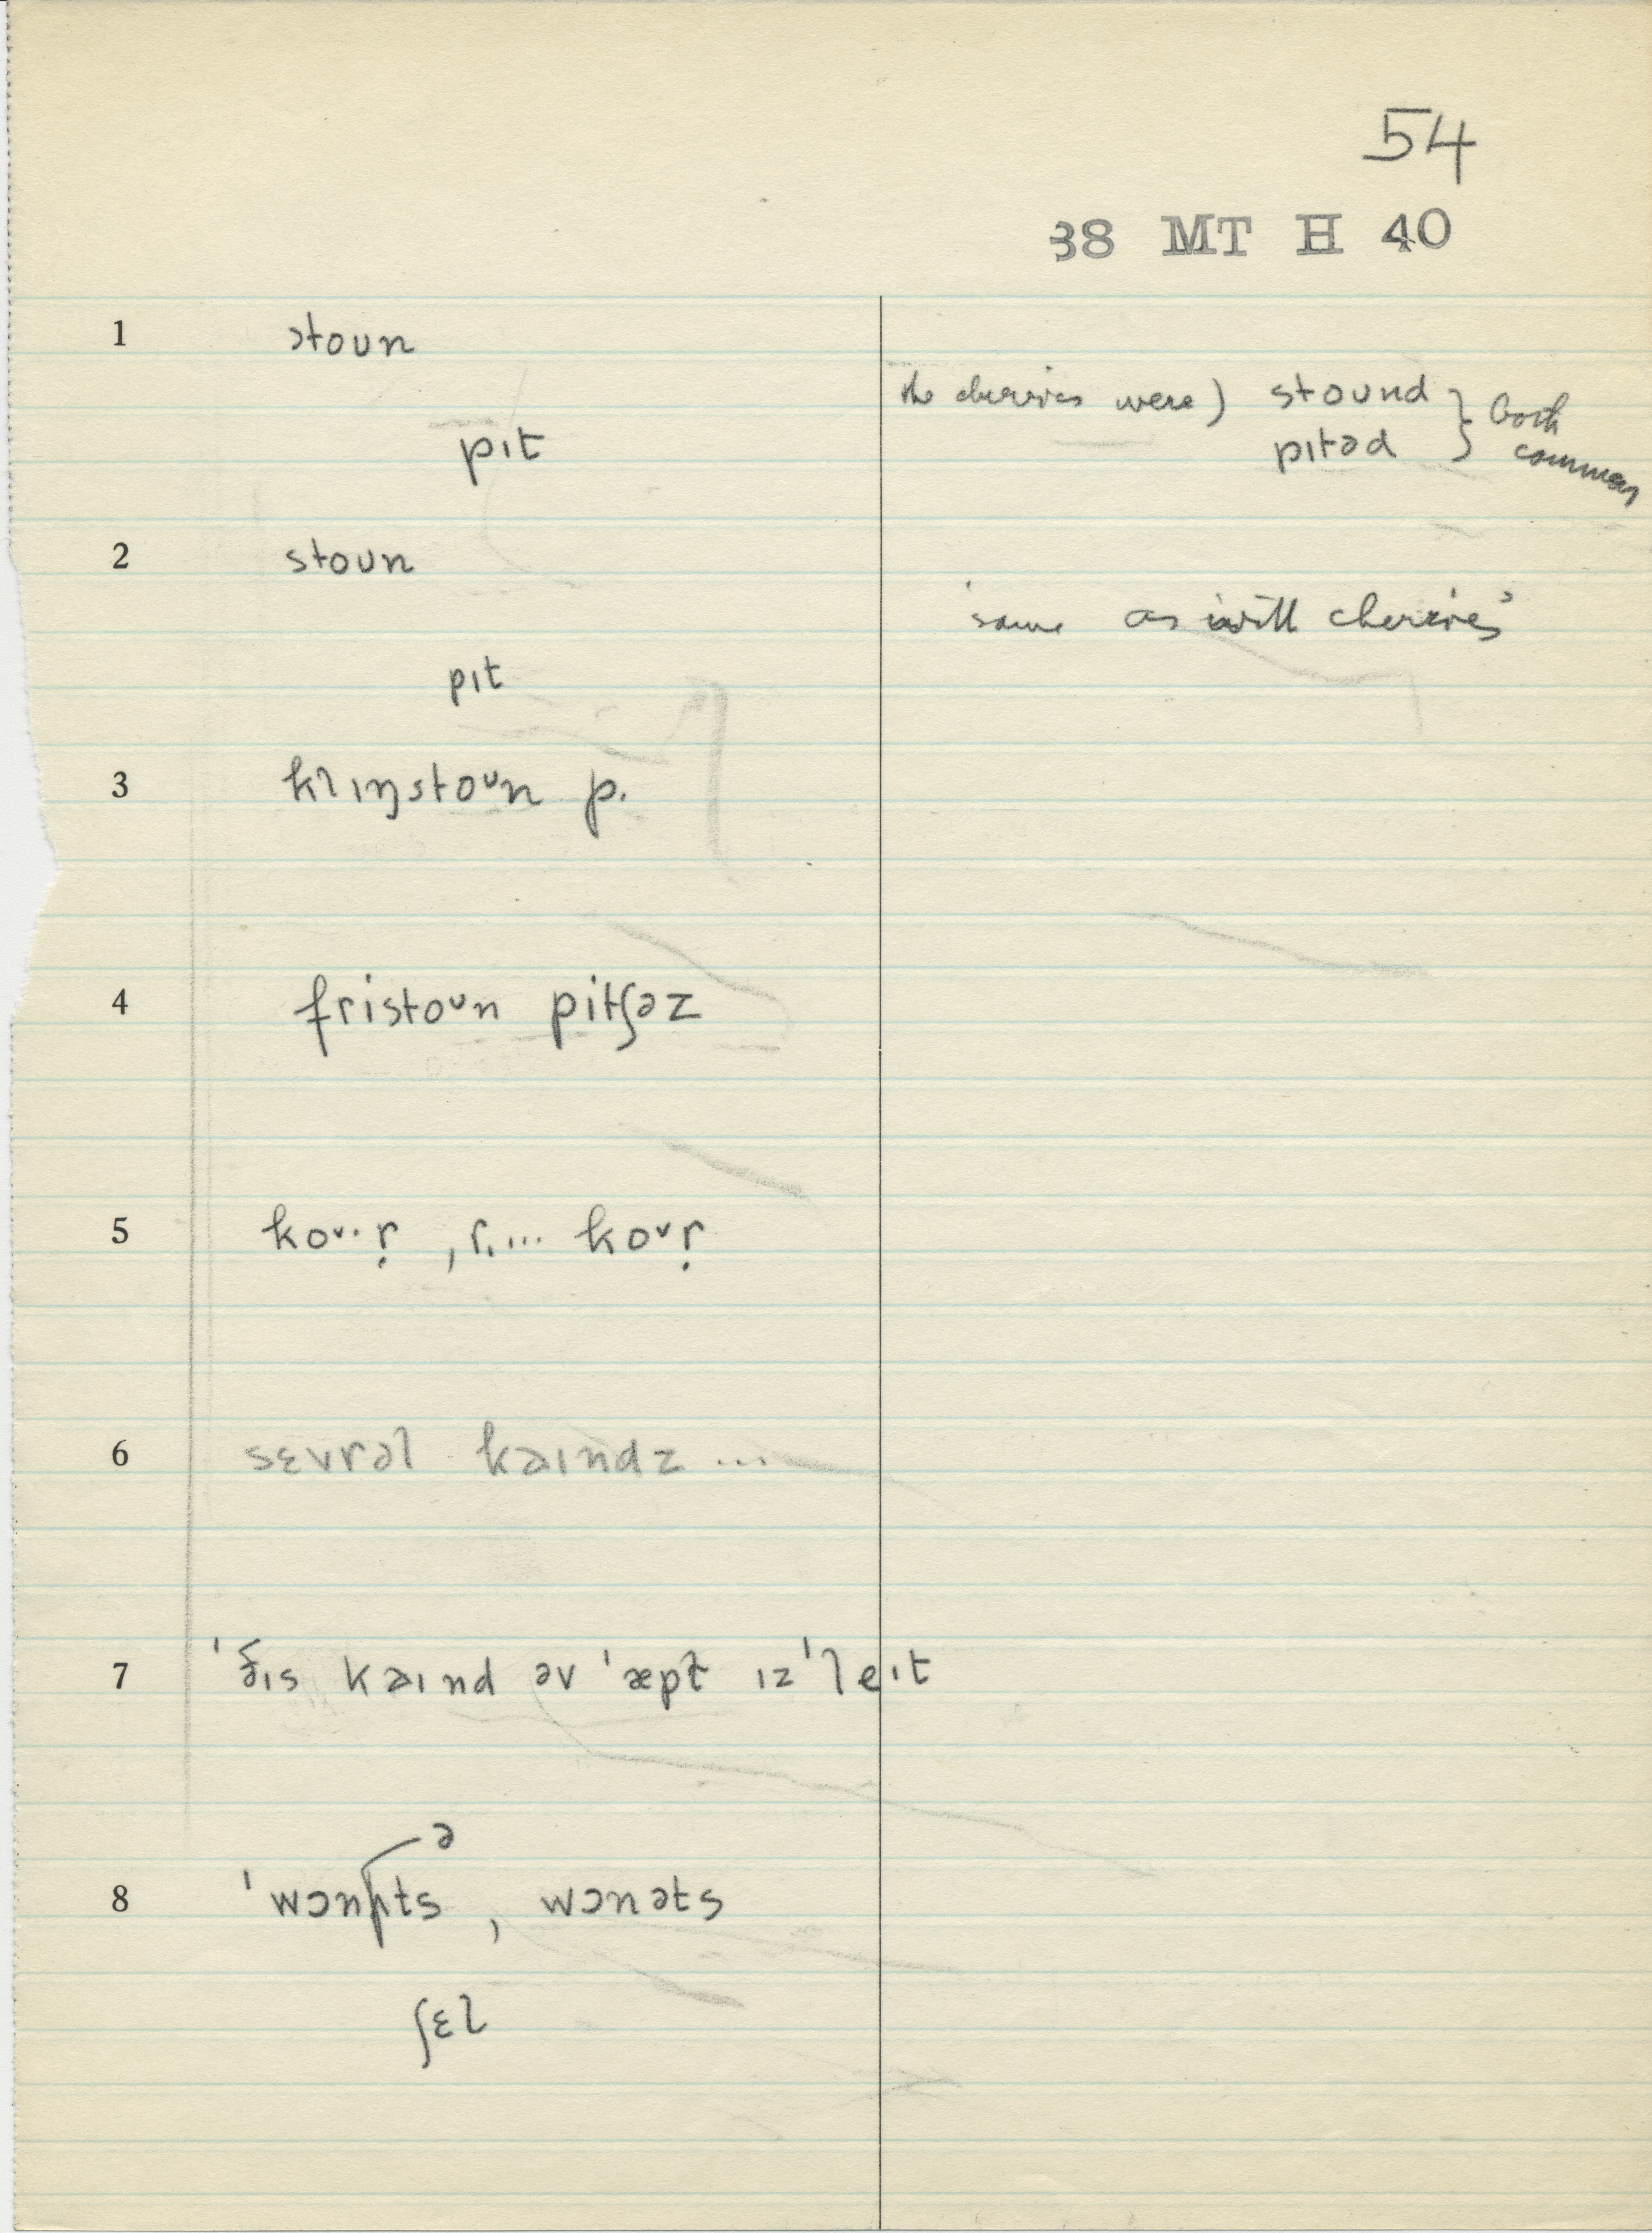 54
38 MT H 40
1 stoun
the cherries were) stound } both
pɪt pɪtəd } common
2 stoun
'same as with cherries'
pɪt
3 klɪŋstoᴜn p.
4 fristoᴜn pitʃəz
5 koᴜ·r̩ , r.... koᴜr̩
6 sɛvrəl kaɪndz ...
7 'ðɪs kaɪnd əv 'æpɫ ɪz 'leɪt
ə
8 'wɔnʌts , wɔnəts
ʃɛl